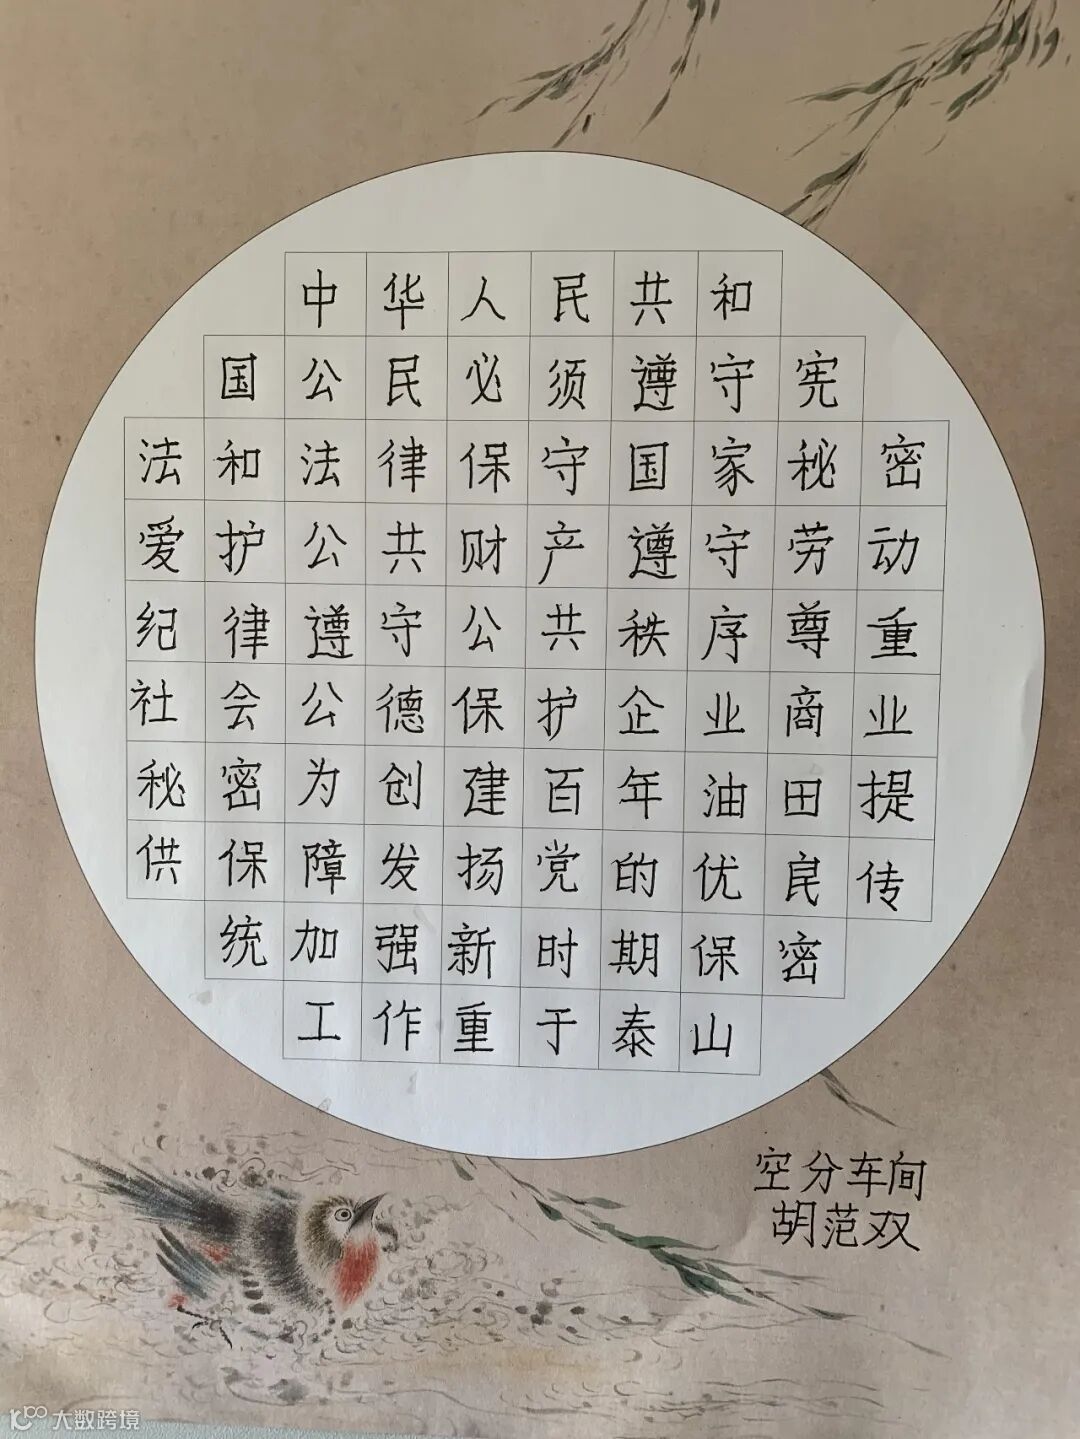 中华人民共和
国公民必须遵守宪
法和法律保守国家秘密
爱护公共财产遵守劳动
纪律遵守公共秩序尊重
社会公德保护企业商业
秘密为创建百年油田提
供保障发扬党的优良传
统加强新时期保密
工作重于泰山
空分车间
胡范双
大数跨境